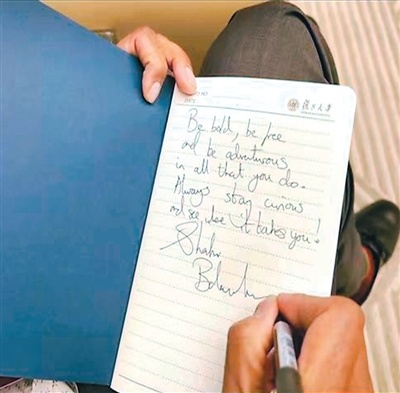 DATE
复旦大学
Be bold, be free
and be adventurous
in all that you do.
Always stay curious
and see where it takes you!